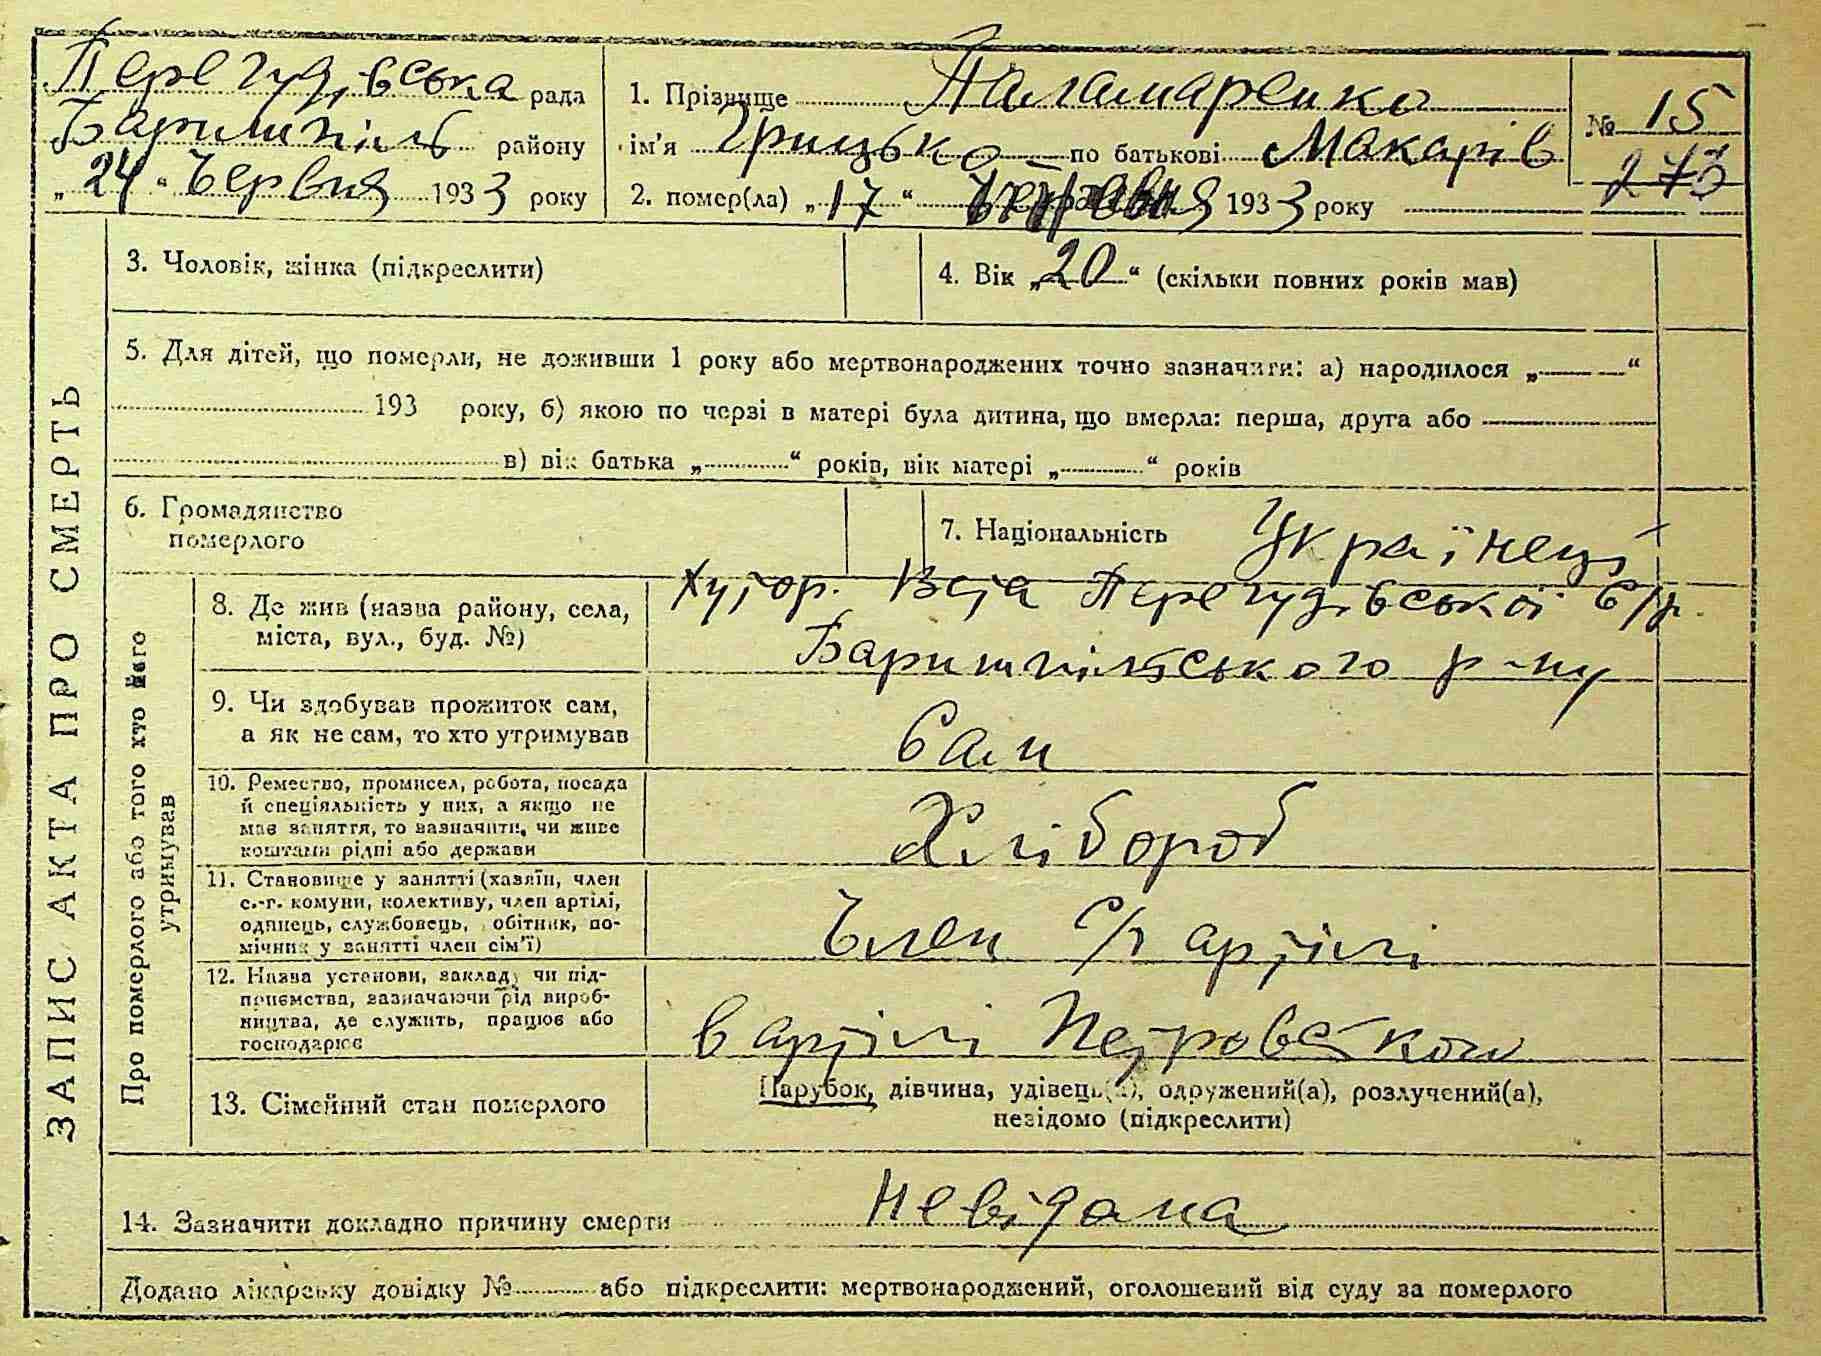 Перегудівська рада
Баришпіль району
„24“ Червня 1933 року
1. Прізвище Паламаренко
ім'я Грицько по батькові Макарів
2. помер(ла) „17“ 1933 року
№ 15
273
ЗАПИС АКТА ПРО СМЕРТЬ
3. Чоловік, жінка (підкреслити)
4. Вік „20“ (скільки повних років мав)
5. Для дітей, що померли, не доживши 1 року або мертвонароджених точно зазначити: а) народилося „ “
193 року, б) якою по черзі в матері була дитина, що вмерла: перша, друга або
в) вік батька „ “ років, вік матері „ “ років
6. Громадянство
померлого
7. Національність Українець
Про померлого або того хто його
утримував
8. Де жив (назва району, села,
міста, вул., буд. №)
Хутор. Перегудівської с/р.
Баришпільського р-ну
9. Чи здобував прожиток сам,
а як не сам, то хто утримував
Сам
10. Ремество, промисел, робота, посада
й спеціяльність у них, а якщо не
має заняття, то зазначити, чи живе
коштами рідні або держави
Хлібороб
11. Становище у занятті (хазяїн, член
с.-г. комуни, колективу, член артілі,
одинець, службовець, обітник, по-
мічник у занятті член сім'ї)
Член с/г артілі
12. Назва установи, закладу чи під-
приємства, зазначаючи рід вироб-
ництва, де служить, працює або
господарює
в артілі Петровського
13. Сімейний стан померлого
Парубок, дівчина, удівець(а), одружений(а), розлучений(а),
незідомо (підкреслити)
14. Зазначити докладно причину смерти Невідома
Додано лікарську довідку № або підкреслити: мертвонароджений, оголошений від суду за померлого